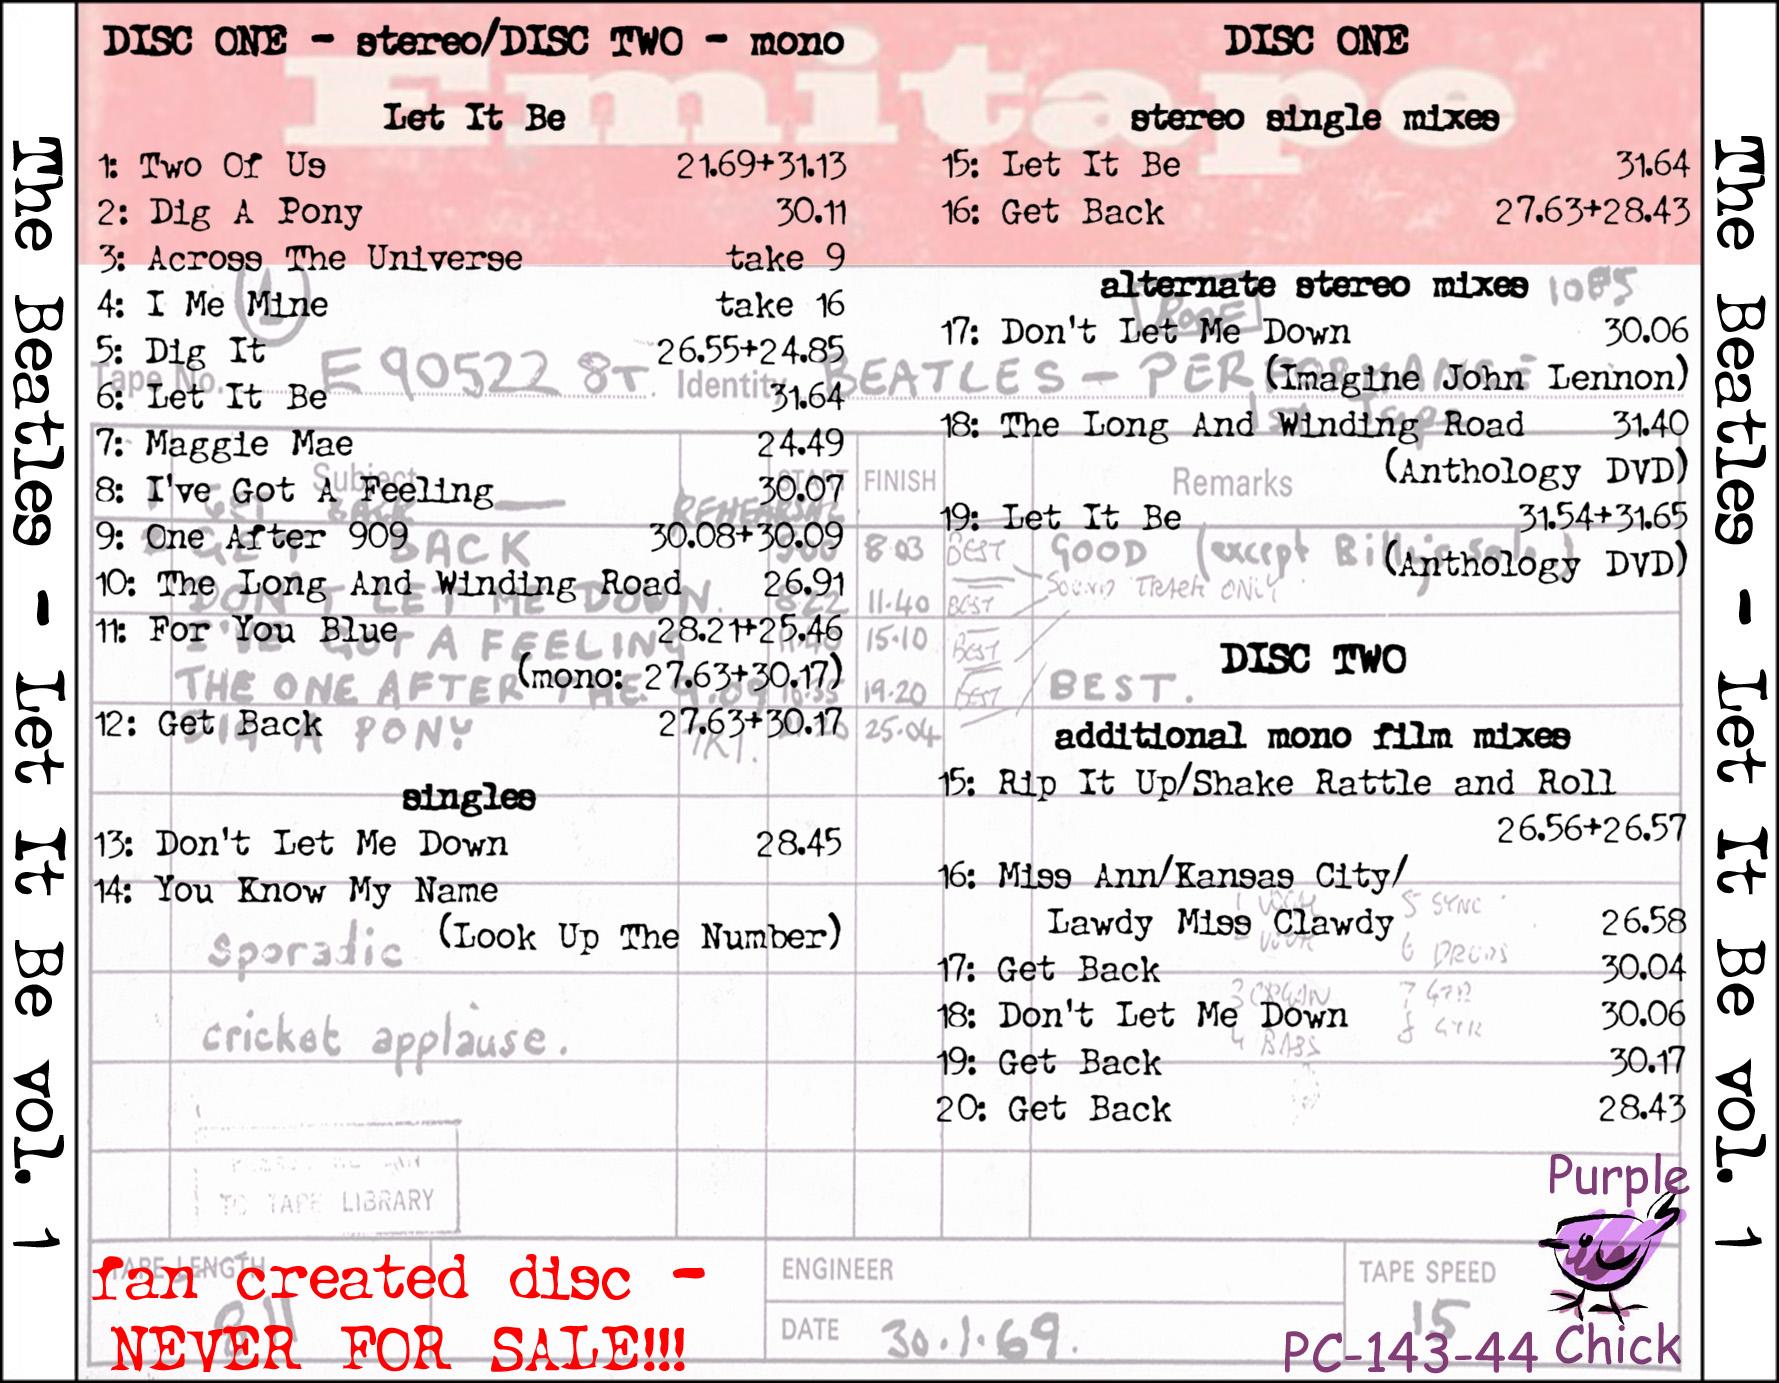 The Beatles - Let It Be vol. 1
DISC ONE - stereo/DISC TWO - mono
Let It Be
1: Two Of Us 21.69+31.13
2: Dig A Pony 30.11
3: Across The Universe take 9
4: I Me Mine take 16
5: Dig It 26.55+24.85
6: Let It Be 31.64
7: Maggie Mae 24.49
8: I've Got A Feeling 30.07
9: One After 909 30.08+30.09
10: The Long And Winding Road 26.91
11: For You Blue 28.21+25.46
(mono: 27.63+30.17)
12: Get Back 27.63+30.17
singles
13: Don't Let Me Down 28.45
14: You Know My Name
(Look Up The Number)
DISC ONE
stereo single mixes
15: Let It Be 31.64
16: Get Back 27.63+28.43
alternate stereo mixes
17: Don't Let Me Down 30.06
(Imagine John Lennon)
18: The Long And Winding Road 31.40
(Anthology DVD)
19: Let It Be 31.54+31.65
(Anthology DVD)
DISC TWO
additional mono film mixes
15: Rip It Up/Shake Rattle and Roll
26.56+26.57
16: Miss Ann/Kansas City/
Lawdy Miss Clawdy 26.58
17: Get Back 30.04
18: Don't Let Me Down 30.06
19: Get Back 30.17
20: Get Back 28.43
fan created disc -
NEVER FOR SALE!!!
Purple
Chick
PC-143-44
The Beatles - Let It Be vol. 1
Emitape
1085
Tape No. E90522 8T. Identity BEATLES - PERFORMANCE
Subject START FINISH Remarks
REHEARSAL
GET BACK 8.03 BEST GOOD (except Billy's solo)
SOUND TRACK ONLY
DON'T LET ME DOWN. 8.22 11.40 BEST
I'VE GOT A FEELING 11.40 15.10 BEST
THE ONE AFTER THE 9.09 16.35 19.20 BEST BEST.
DIG A PONY 25.04
sporadic
cricket applause.
5 SYNC
6 DRUMS
3 ORGAN 7 GTR
4 BASS 8 GTR
TO TAPE LIBRARY
TAPE LENGTH
ENGINEER
DATE 30.1.69.
TAPE SPEED
15